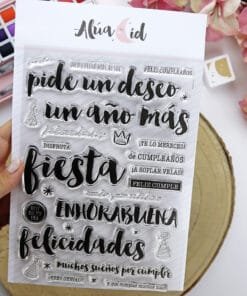 Alúa Cid
FELIZ CUMPLEAÑOS
pide un deseo
un año más
DISFRUTA
TE LO MERECES
de CUMPLEAÑOS
¡A SOPLAR VELAS!
fiesta
FELIZ CUMPLE
ENHORABUENA
felicidades
muchos sueños por cumplir